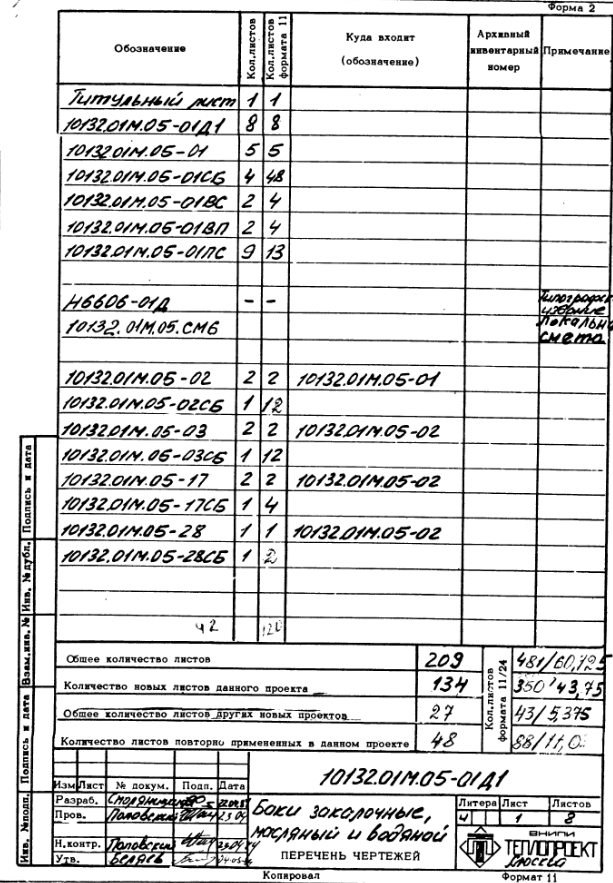 Форма 2
Обозначение Кол.листов Кол.листов формата 11 Куда входит (обозначение) Архивный инвентарный номер Примечание
Титульный лист 1 1
10132.01М.05-01Д1 8 8
10132.01М.05-01 5 5
10132.01М.05-01СБ 4 48
10132.01М.05-01ВС 2 4
10132.01М.05-01ВП 2 4
10132.01М.05-01ПС 9 13
Н6606-01Д - - издание
10132.01М.05.СМ6 Локальна смета
10132.01М.05-02 2 2 10132.01М.05-01
10132.01М.05-02СБ 1 12
10132.01М.05-03 2 2 10132.01М.05-02
10132.01М.05-03СБ 1 12
10132.01М.05-17 2 2 10132.01М.05-02
10132.01М.05-17СБ 1 4
10132.01М.05-28 1 1 10132.01М.05-02
10132.01М.05-28СБ 1 2
42 120
Общее количество листов 209
Количество новых листов данного проекта 134
Общее количество листов других новых проектов 27
Количество листов повторно примененных в данном проекте 48
Кол.листов формата 11/24
481/60,125
350 43,75
43/5,375
88/11,0
Инв. №подл. Подпись и дата Взам.инв. № Инв. №дубл. Подпись и дата
10132.01М.05-01Д1
Изм Лист № докум. Подп. Дата
Разраб.
Пров. Паповский
Н.контр. Паповский
Утв. Беляев
Баки закалочные,
масляный и водяной
ПЕРЕЧЕНЬ ЧЕРТЕЖЕЙ
Литера Лист Листов
Ч 1 8
ВНИПИ
ТЕПЛОПРОЕКТ
Москва
Копировал Формат 11